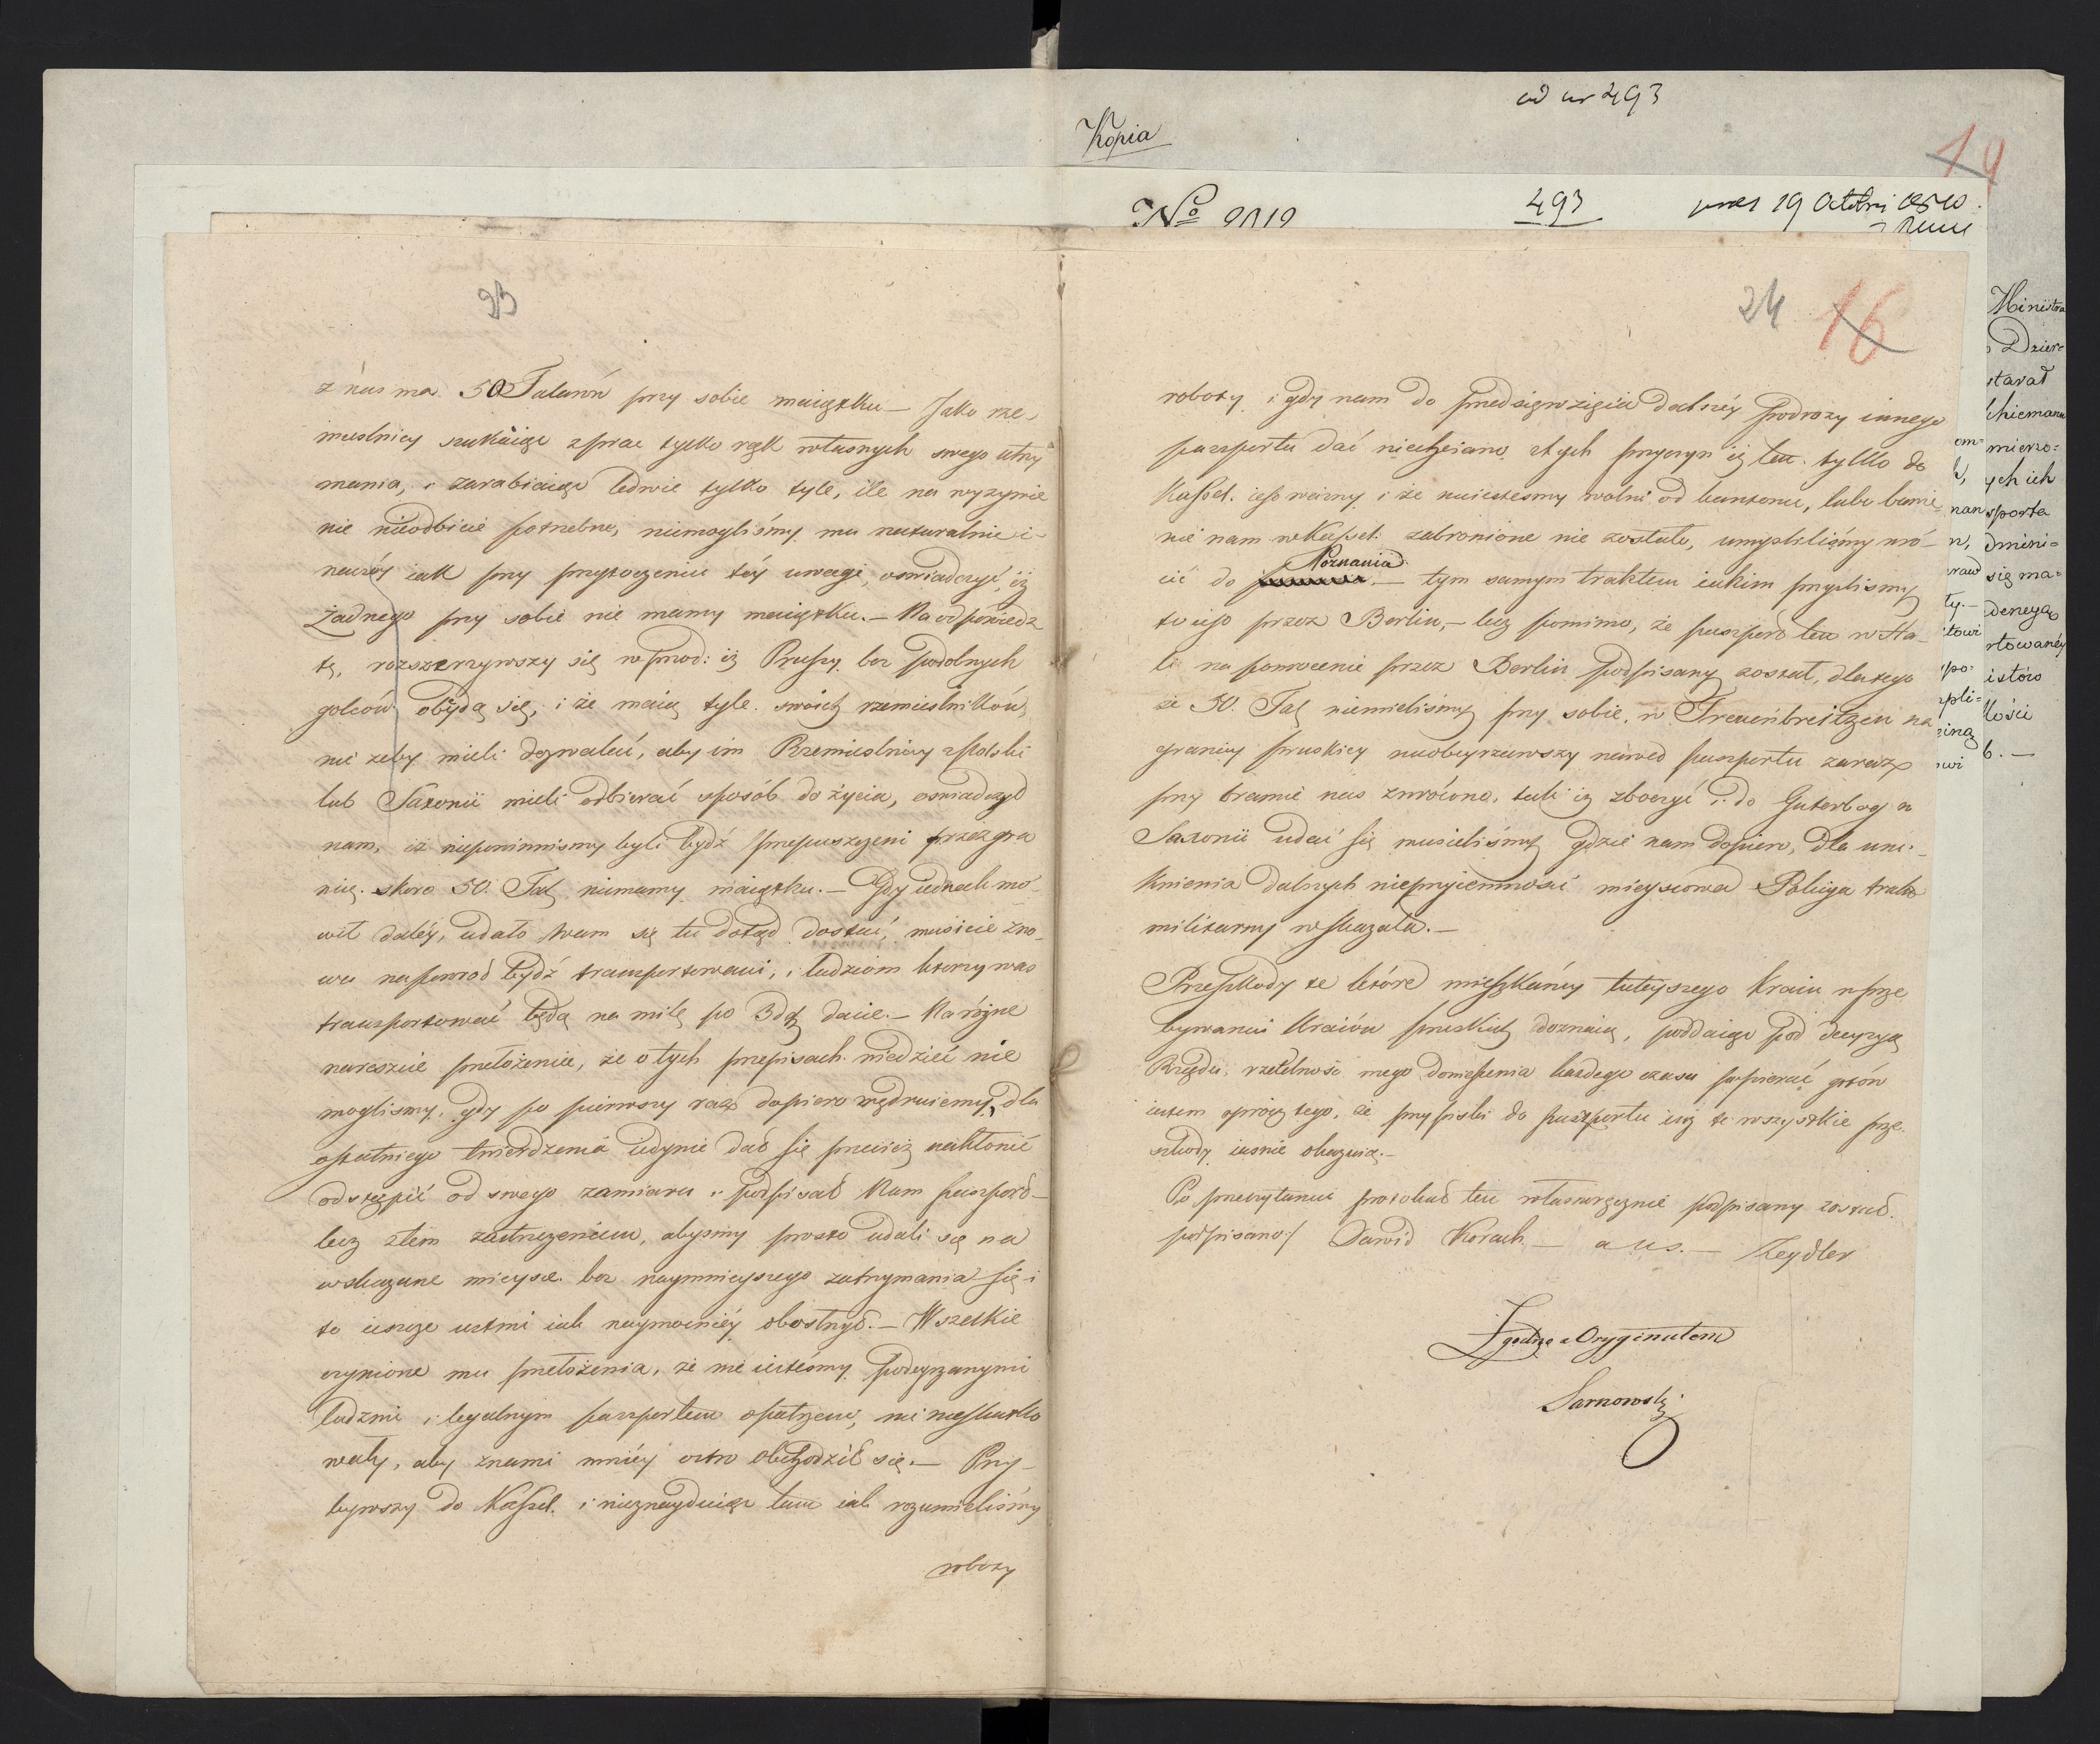 ad nr 493
Kopia
14
No 9019 493 praes 19 Octobri 1810
23
z nas ma 50 Talarów przy sobie maiątku — Jako rze-
mieslnicy szukaiąc z prac tylko rąk własnych swego utrzy
mania, i zarabiaiąc ledwie tylko tyle, ile na wyzywie
nie nieodbicie potrzebne, niemogliśmy mu naturalnie i-
naczey iak przy przytoczeniu téy uwagi, oswiadczyć, iż
żadnego przy sobie nie mamy maiątku. — Na odpowiedz
tę, rozszerzywszy się wprzod: iż Prussy bez podobnych
golców obeydą się, i że maią tyle swoich rzemieslników,
nie zeby mieli dozwalać, aby im Rzemieslnicy z Polski
lub Saxonii mieli odbierać sposób do życia, oswiadczył
nam, iż niepowinnismy byli bydź przepuszczeni przez gra
nicę. skoro 50. Tal. niemamy maiątku. — Gdy iednak mó-
wił daléy, udało wam się tu dotąd dostać, musicie zno-
wu napowrod bydź transportowani, i ludziom ktorzy was
transportować będą na milę po 3 dgr dacie. — Na różne
nareszcie przełożenie, że o tych przepisach wiedzieć nie
moglismy, gdy po pierwszy raz dopiero wędruiemy, dla
ostatniego twierdzenia iedynie dał się przecież nakłonić
odstąpić od swego zamiaru i podpisał Nam paszport —
lecz z tem zastrzeżeniem, abysmy prosto udali się na
wskazane mieysce bez naymnieyszego zatrzymania się i
to ieszcze ustnie iak naymocniéy obostrzył. — Wszelkie
czynione mu przełożenia, że nie iestesmy podeyrzanymi
ludzmi i legalnym paszportem opatrzeni, nie neskutko
wały, aby z nami mniéy ostro obchodził się. — Przy-
bywszy do Kassel. i nieznayduiąc tam iak rozumieliśmy
roboty
24 16
roboty i gdy nam do przedsięwzięcia dalszéy podrozy innego
paszportu dać niechciano z tych przyczyn iż ten tylko do
Kassel. iest ważny i że nie iestesmy wolni od kantonu, lubo bawie
nie nam w Kassel. zabronione nie zostało, umyśliliśmy wró-
cić do Poznania — tym samym traktem iakim przyszlismy
to iest przez Berlin, — lecz pomimo, że paszport ten w Ha-
li na powrocenie przez Berlin podpisany został, dlatego
że 50. Tal. niemielismy przy sobie, w Treuenbreitzen na
granicy pruskiey nieobeyrzawszy nawed paszportu zaraz
przy bramie nas zwrócono, tak iż zboczyć i do Guterbog w
Saxonii udać się musieliśmy gdzie nam dopiero, dla uni-
knienia dalszych nieprzyiemnosci mieyscowa Policya trakt
militarny wskazała. —
Przeszkody te które mieszkańcy tuteyszego kraiu w prze
bywaniu Kraiów pruskich doznaią, poddaiąc pod decyzyą
Rządu, rzetelność mego doniesienia każdego czasu popierać gotów
iestem oprócz tego, że przypiski do paszportu iuż te wszystkie prze-
szkody iasnie okazuią. —
Po przeczytaniu protokuł ten własnoręcznie podpisany został.
podpisano/ Dawid Korach. — a. u. s. — Zeydler
Zgodno z Oryginałem
Sarnowski
Ministra
Dzier=
starał
mierzo=
ych ich
sporta
dmini=
się ma=
rtowanéy
istów
lości